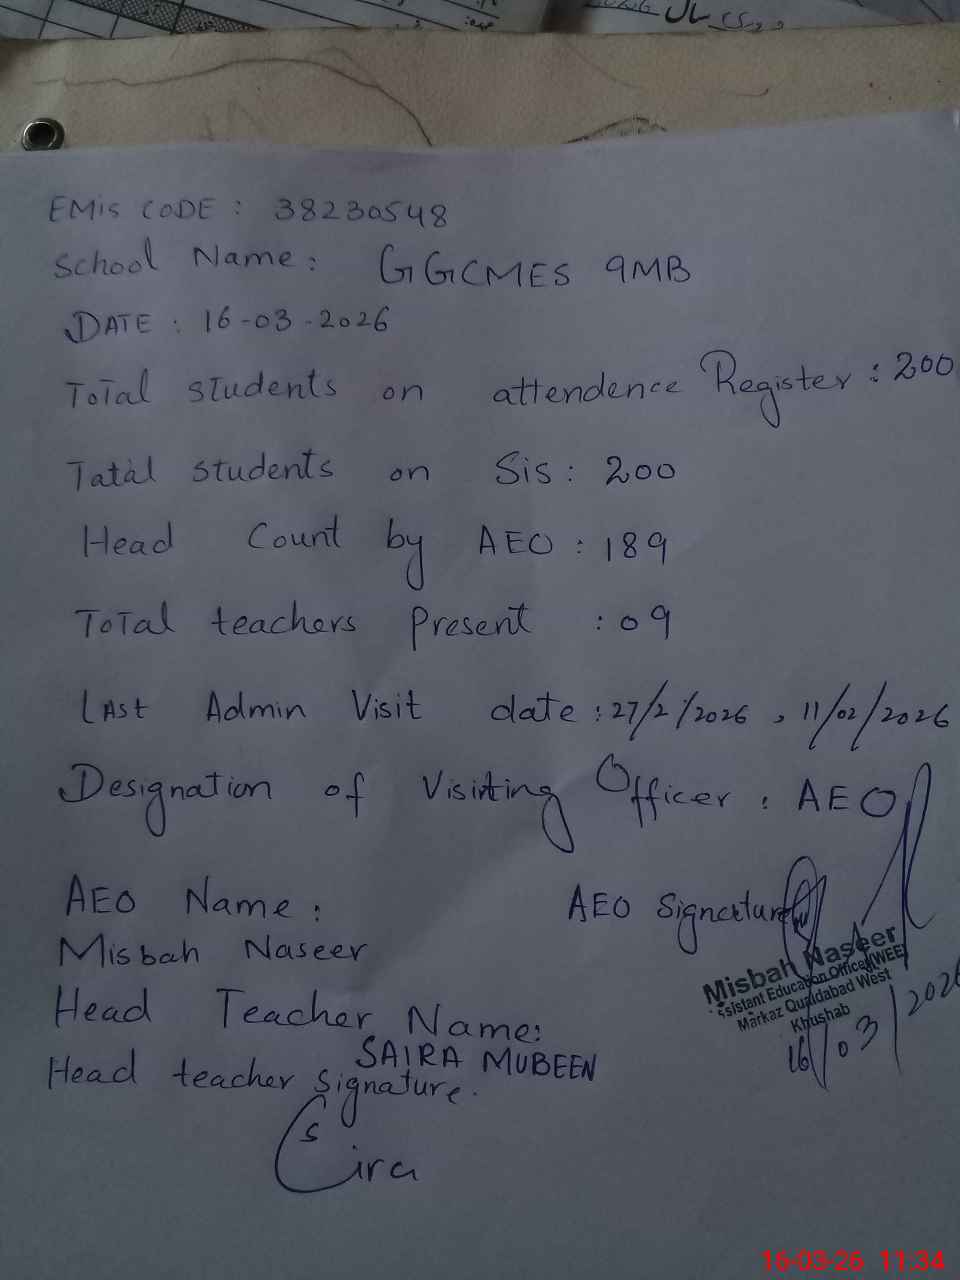 EMis CODE : 38230548
School Name : GGCMES 9MB
DATE : 16-03-2026
Total students on attendence Register : 200
Tatal students on Sis : 200
Head Count by AEO : 189
Total teachers Present : 09
Last Admin Visit date : 27/2/2026 , 11/02/2026
Designation of Visiting Officer : AEO
AEO Name :
AEO Signature
Misbah Naseer
Misbah Naseer
ssistant Education Officer (WEE)
Markaz Quaidabad West
Khushab
16/03/2026
Head Teacher Name:
SAIRA MUBEEN
Head teacher signature.
16-03-26 11:34